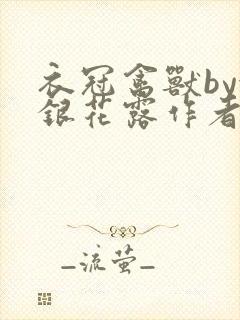 衣冠禽獸by
銀花露作者
_流萤_